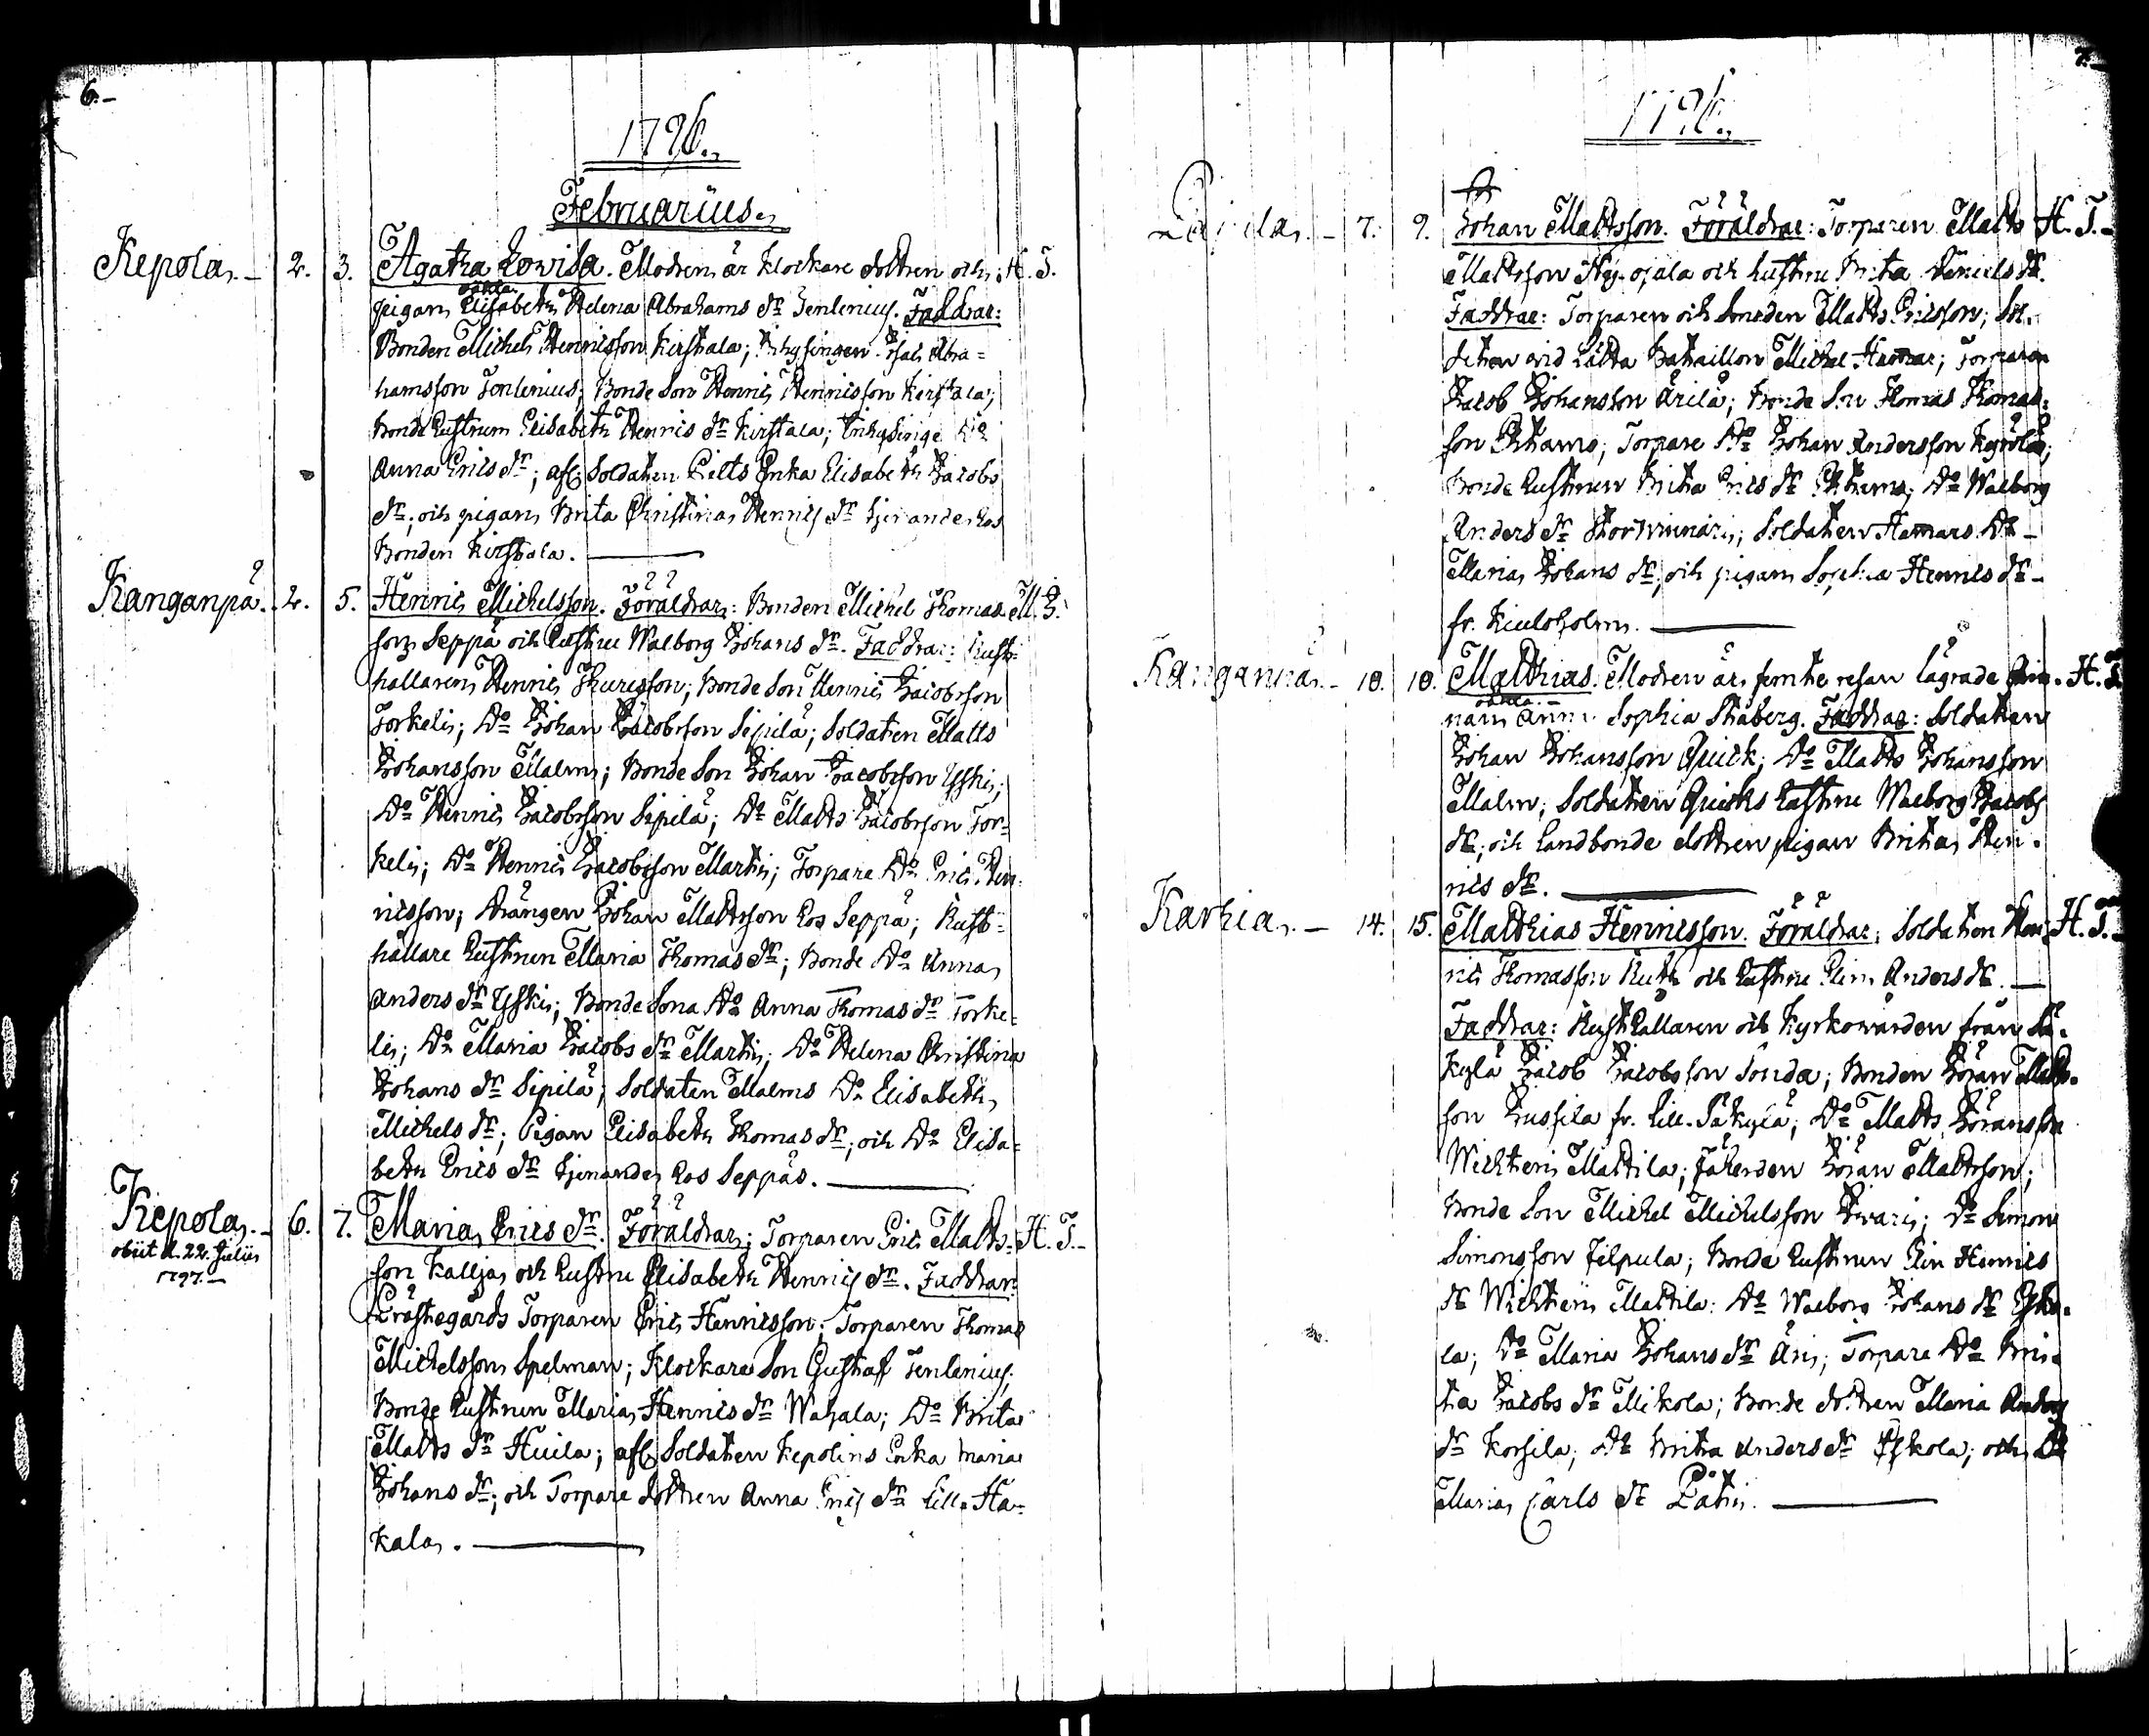 6.
1796.
Februarius.
Kepola. 2. 3. Agatha Lovisa. Modren är klockare dottren och H. T.
pigan Elisabeth Helena Abrahams dr Tenlenius. Faddrar:
Bonden Michel Hennicsson Kirstala; Inhysingen Isac Abra=
hamsson Tenlenius; Bonde Son Hennic Hennicsson Kirstala;
Bonde hustrun Elisabeth Hennics dr Kirstala; Inhysinge
Anna Erics dr; afl. Soldaten Enka Elisabeth Jacobs
dr; och pigan Brita Christina Hennics dr tjenande hos
Bonden Kirstala.
Kanganpä. 2. 5. Hennic Michelsson. Föräldrar: Bonden Michel Thomas= M. J.
son Seppä och hustru Walborg Johans dr. Faddrar: Rust=
hållaren Hennic Thuresson; Bonde Son Hennic Jacobsson
Torkelis; Do Johan Jacobsson Sipilä; Soldaten Matts
Johansson Malm; Bonde Son Johan Jacobsson Ysskis;
Do Hennic Jacobsson Sipilä; Do Matts Jacobsson Tor=
kelis; Do Hennic Jacobsson Martis; Torpare Do Eric Hen=
nicsson; drängen Johan Mattsson hos Seppä; Rust=
hållare hustrun Maria Thomas dr; Bonde Do Anna
Anders dr Ysskis; Bonde Sona Do Anna Thomas dr Torke=
lis; Do Maria Jacobs dr Martis; Do Helena Christina
Johans dr Sipilä; Soldaten Malms Do Elisabeth
Michels dr; Pigan Elisabeth Thomas dr; och Do Elisa=
beth Erics dr tjenande hos Seppäs.
Kepola. 6. 7. Maria Erics dr. Föräldrar; Torparen Eric Matts= H. T.
obiit d. 22. Julii
1797.
son Kallja och hustru Elisabeth Hennics dr. Faddrar:
Prästegårds Torparen Eric Hennicsson; Torparen Thomas
Michelsson Spelman; Klockare Son Gustaf Tenlenius;
Bonde hustrun Maria Hennics dr Wahala; Do Brita
Matts dr Huila; afl. Soldaten Kepolins Enka Maria
Johans dr; och Torpare dottren Anna Erics dr Lill-Ha=
kala.
7.
1796.
7. 9. Johan Mattsson. Föräldrar: Torparen Matts H. T.
Mattsson ojala och hustru Brita Daniels dr.
Faddrar: Torparen och Smeden Matts Ericsson; Sol=
daten vid Lätta Bataillon Michel Hamar; Torparen
Jacob Johansson Ärilä; Bonde Son Thomas Thomas=
son; Torpare Do Johan Andersson
Bonde hustrun Brita Erics dr; Do Walborg
Anders dr; Soldaten Hamars Do
Maria Johans dr; och pigan Sophia Hennics dr
fr. Kiuloholm.
Kanganpä. 10. 10. Matthias. Modren är femte resan lägrade H. T.
Sophia Ståberg. Faddrar: Soldaten
Johan Johansson Quick; Do Matts Johansson
Malm; Soldaten Quicks hustru Walborg Jacobs
dr; och Landbonde dottren pigan Brita Hen=
nics dr.
Karhia. 14. 15. Matthias Hennicsson. Föräldrar; Soldaten Hen= H. T.
nic Thomasson och hustru Elin Anders dr.
Faddrar: Rusthållaren och Kyrkowärden från Sä=
kylä Jacob Jacobsson Sonda; Bonden Göran Matts=
son Jussila fr. Lill-Säkylä; Do Matts Göransson
Wichteris Mattila; Göran Mattsson;
Bonde Son Michel Michelsson; Do Simon
Simonsson Filpula; Bonde hustrun Elin Hennics
dr Wichteris Mattila; Do Walborg Johans dr Esko=
la; Do Maria Johans dr Äris; Torpare Do Bri=
ta Jacobs dr Mikola; Bonde dottren Maria Anders
dr Korsila; Do Brita Anders dr Eskola; och Do
Maria Carls dr Pätis.